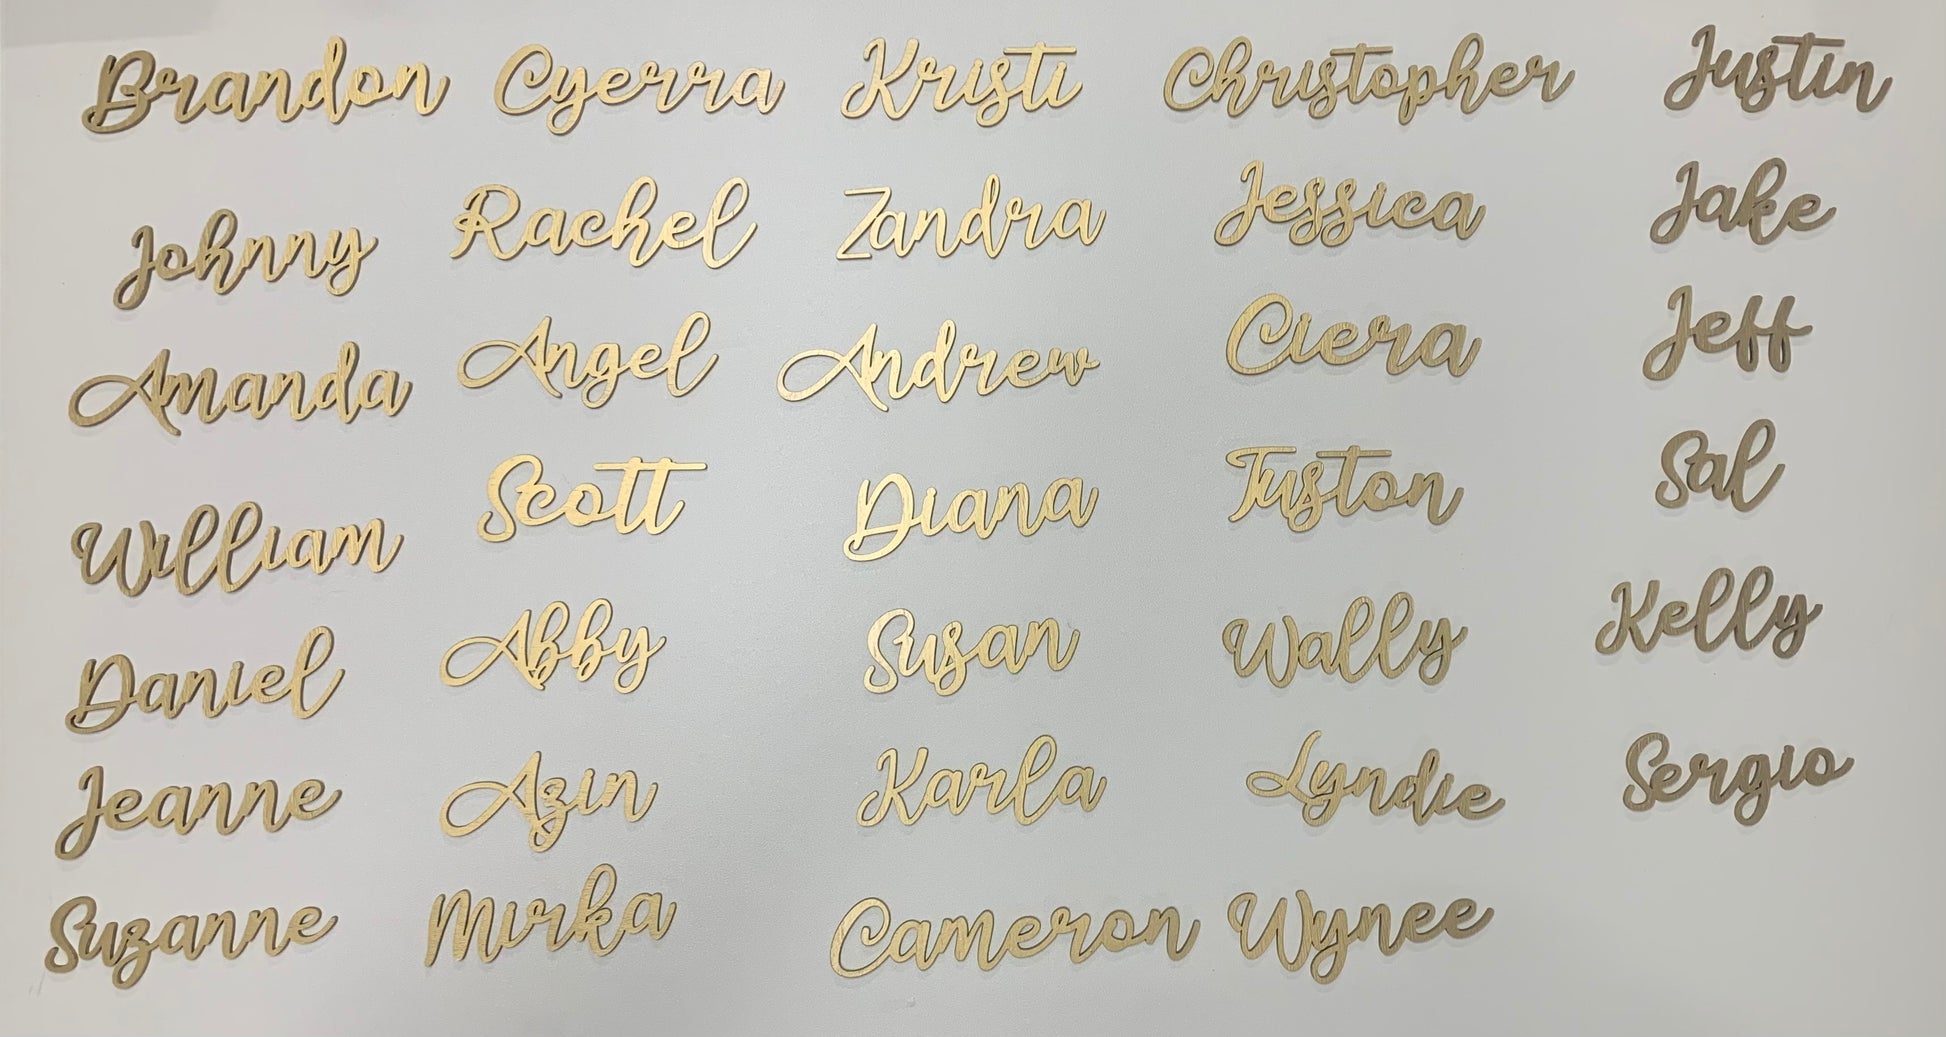 Brandon Cyerra Kristi Christopher Justin
Johnny Rachel Zandra Jessica Jake
Amanda Angel Andrew Ciera Jeff
William Scott Diana Tuston Sal
Daniel Abby Susan Wally Kelly
Jeanne Azin Karla Lyndie Sergio
Suzanne Mirka Cameron Wynee